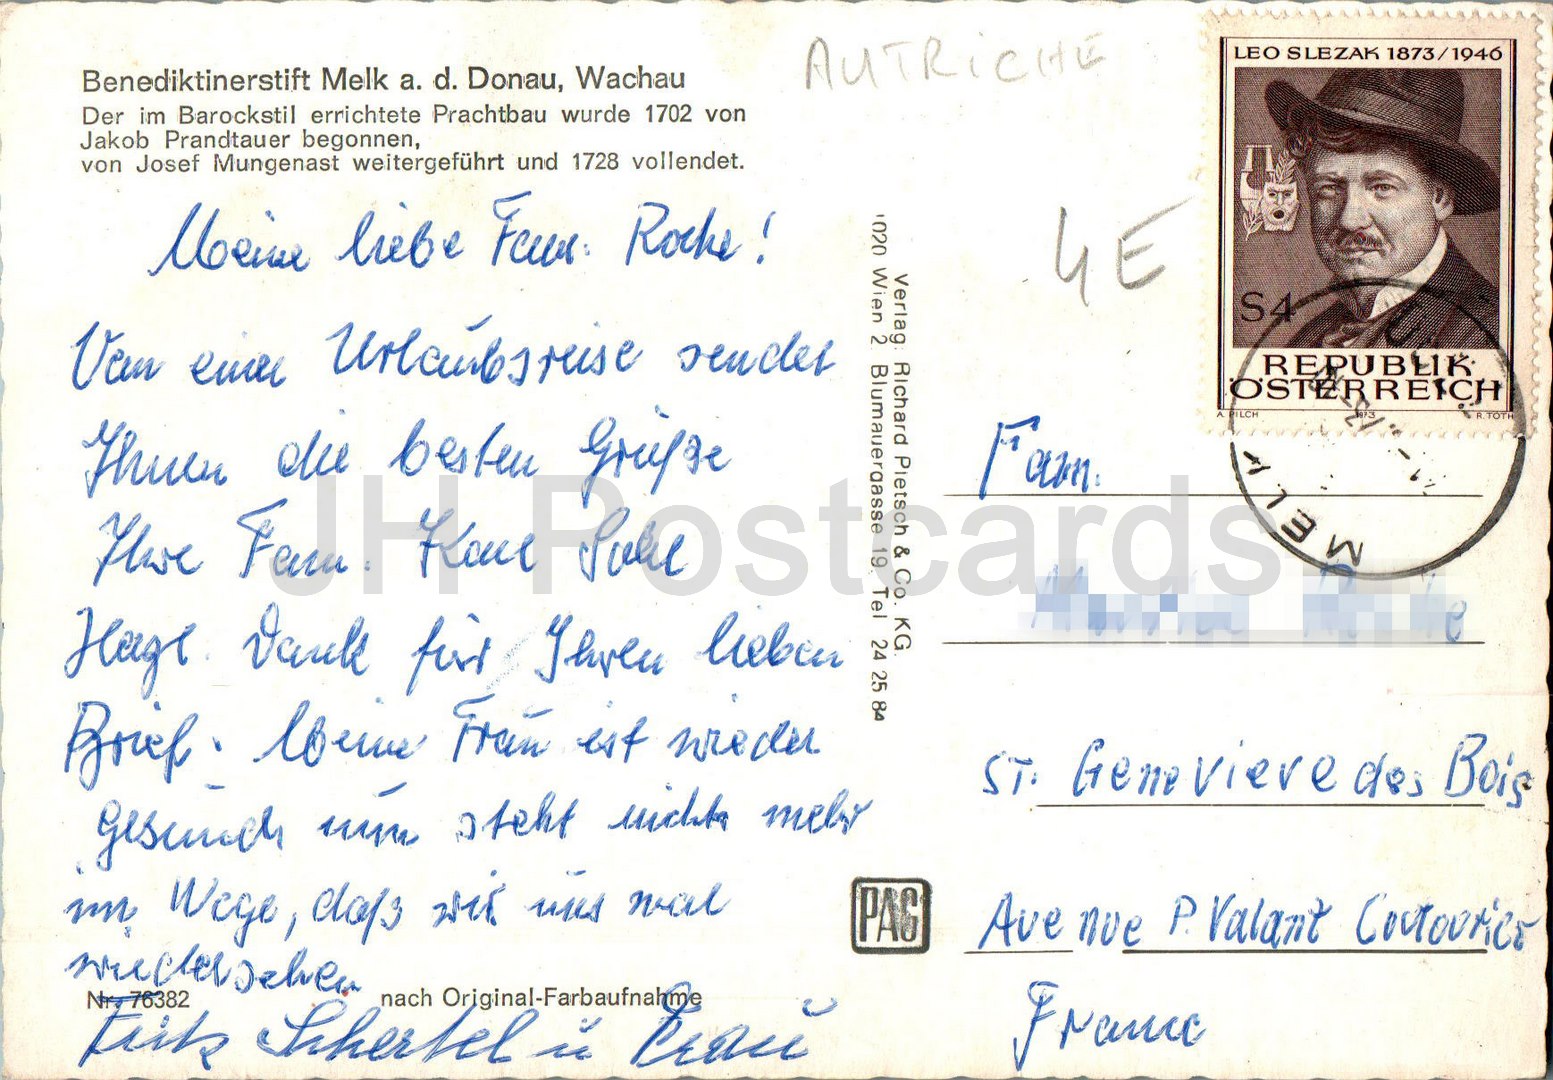 Benediktinerstift Melk a. d. Donau, Wachau
Der im Barockstil errichtete Prachtbau wurde 1702 von
Jakob Prandtauer begonnen,
von Josef Mungenast weitergeführt und 1728 vollendet.
Meine liebe Fam. Roche!
Von einer Urlaubsreise sendet
Ihnen die besten Grüße
Ihre Fam. Karl
Dank für Ihren lieben
Brief. Meine Frau ist wieder
gesund, nun steht nichts mehr
im Wege, daß wir uns mal
wiedersehen
Nr. 76382 nach Original-Farbaufnahme
Fritz Schertel u Frau
Verlag: Richard Pietsch & Co. KG.
1020 Wien 2. Blumauergasse 19. Tel 24 25 84
PAG
AUTRICHE
4E
LEO SLEZAK 1873/1946
S4
REPUBLIK
ÖSTERREICH
A. PILCH 1973 R. TOTH
MELK
Fam.
ST. Genevieve des Bois
Avenue P. Valant
France
JH Postcards